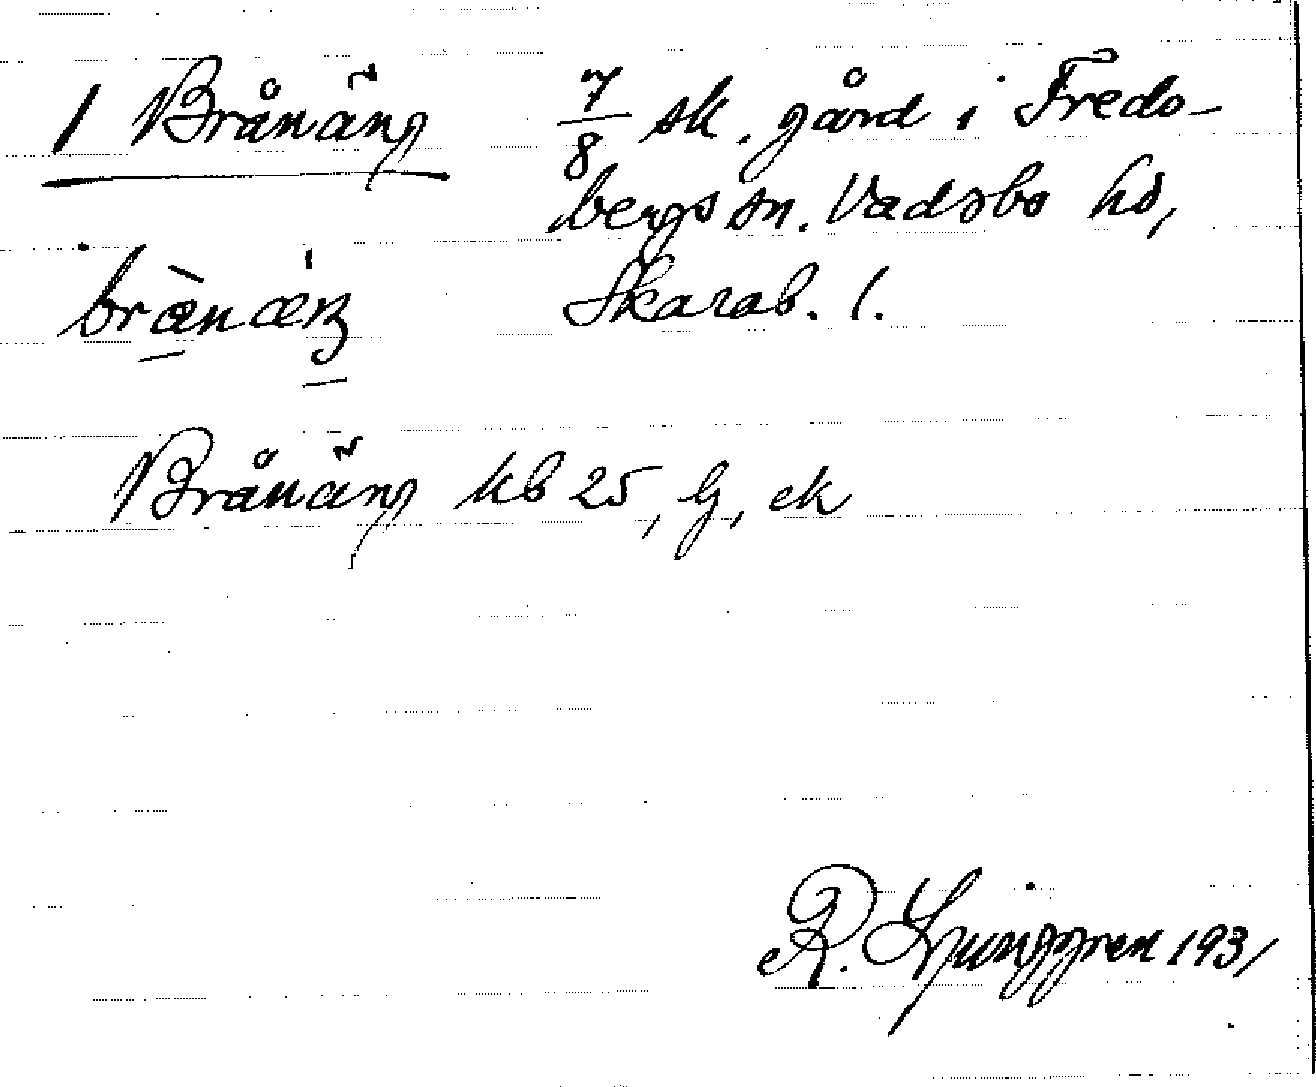 1 Brånäng 7/8 sk. gård i Freds-
bergs sn. Vadsbo hd,
brænæŋ Skarab. l.
Brånäng kb 25, G, ek
R. Ljunggren 1931